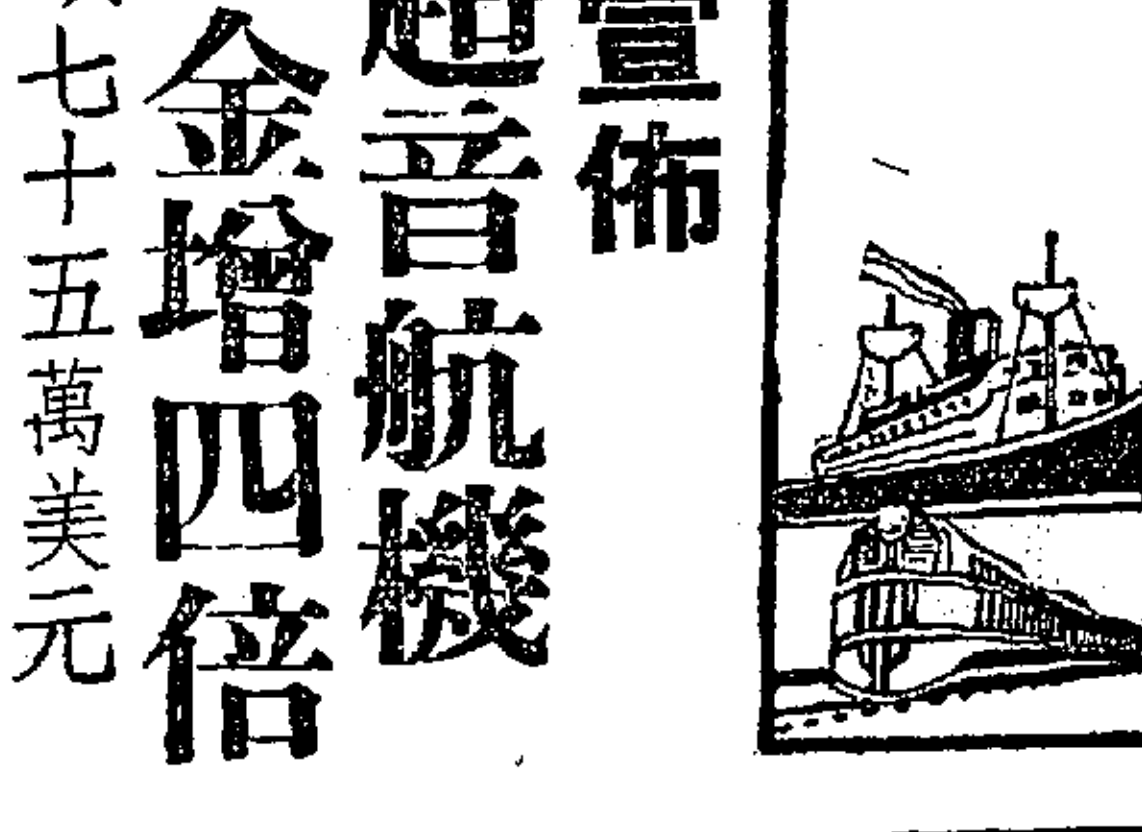 宣佈
超音航機
金增四倍
七十五萬美元